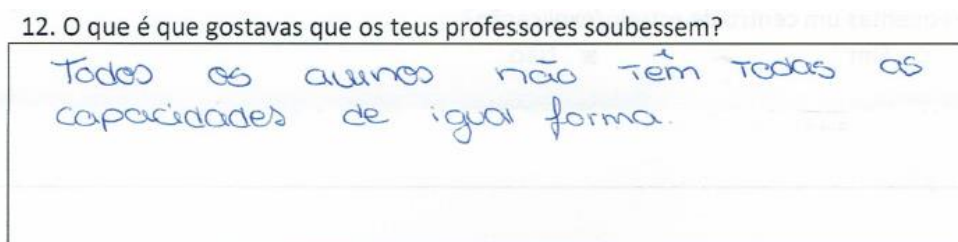 12. O que é que gostavas que os teus professores soubessem?
Todos os alunos não têm todas as
capacidades de igual forma.